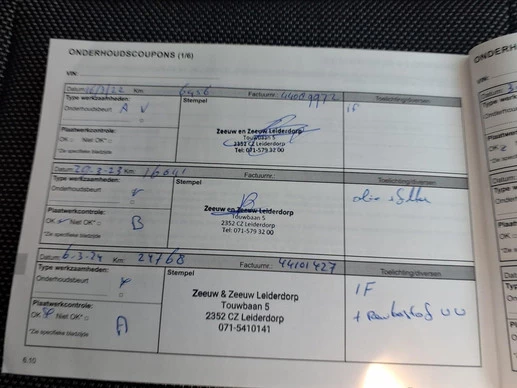 ONDERHOUDSCOUPONS (1/6)
VIN:
Datum: 16/3/22 Km: 6456 Factuurnr.: 44089972
Type werkzaamheden: Stempel Toelichting/diversen
Onderhoudsbeurt A V IF
Plaatwerkcontrole:
OK Niet OK*
*Zie specifieke bladzijde
Zeeuw en Zeeuw Leiderdorp
Touwbaan 5
2352 CZ Leiderdorp
Tel: 071-579 32 00
Datum: 20-2-23 Km: 16641 Factuurnr.:
Type werkzaamheden: Stempel Toelichting/diversen
Onderhoudsbeurt
Plaatwerkcontrole:
OK Niet OK* B
*Zie specifieke bladzijde
Zeeuw en Zeeuw Leiderdorp
Touwbaan 5
2352 CZ Leiderdorp
Tel: 071-579 32 00
olie + filter
Datum: 6-3-24 Km: 24168 Factuurnr.: 44101427
Type werkzaamheden: Stempel Toelichting/diversen
Onderhoudsbeurt
Plaatwerkcontrole:
OK Niet OK* A
*Zie specifieke bladzijde
Zeeuw & Zeeuw Leiderdorp
Touwbaan 5
2352 CZ Leiderdorp
071-5410141
IF
+ Remvloeistof
6.10
ONDERH
VIN:
Datum:
Type we
Onderho
Plaatwe
OK
*Zie spe